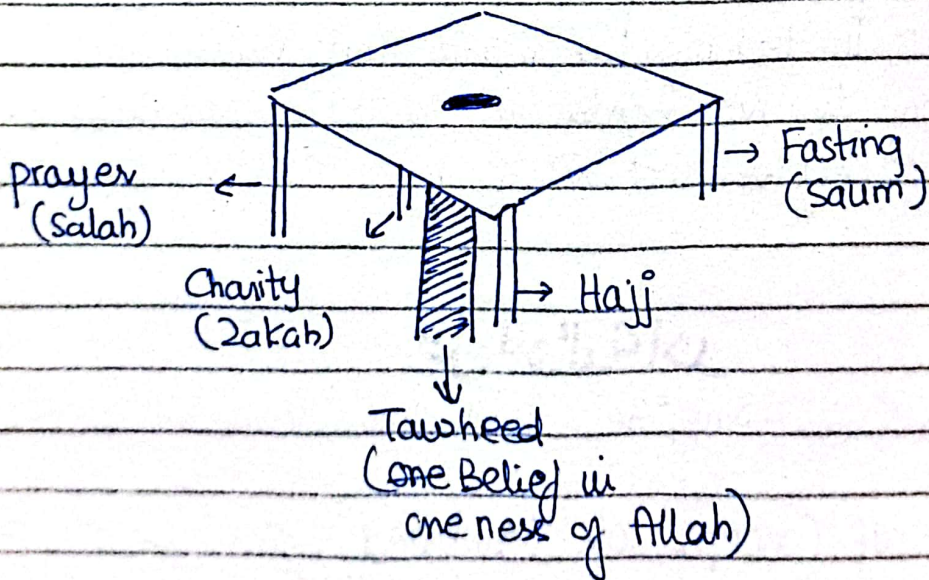 prayer
(Salah)
Fasting
(Saum)
Charity
(Zakah)
Hajj
Tawheed
(one Belief in
oneness of Allah)